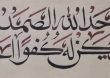 حد الله الصمد
يكن له كفوا